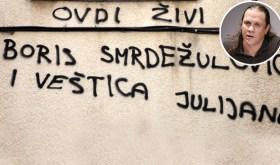 OVDI ŽIVI
BORIS SMRDEŽULOVIĆ
I VEŠTICA JULIJANA